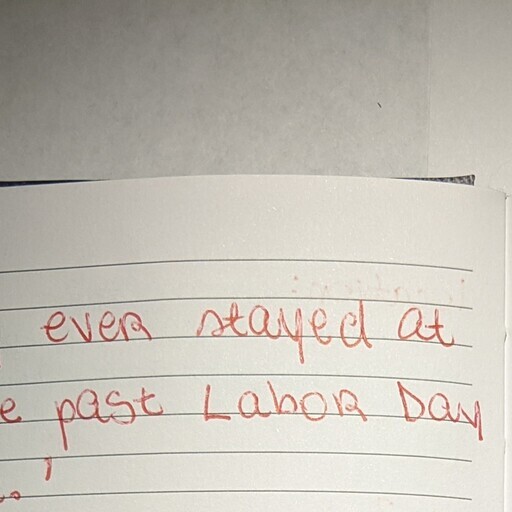 ever stayed at
e past Labor Day